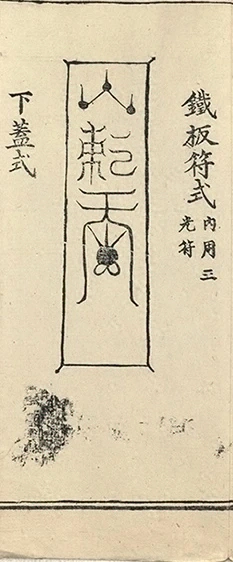 鐵板符式
內用三
光符
下蓋式